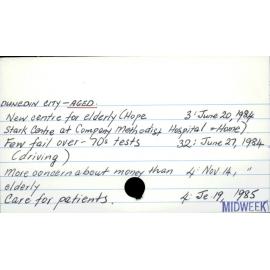 DUNEDIN CITY - AGED.
New centre for elderly (Hope 3: June 20, 1984
Stark Centre at Company Methodist Hospital + Home)
Few fail over-70s tests 32: June 27, 1984
(driving)
More concern about money than 4: Nov 14, "
elderly
Care for patients. 4: Je 19, 1985
MIDWEEK